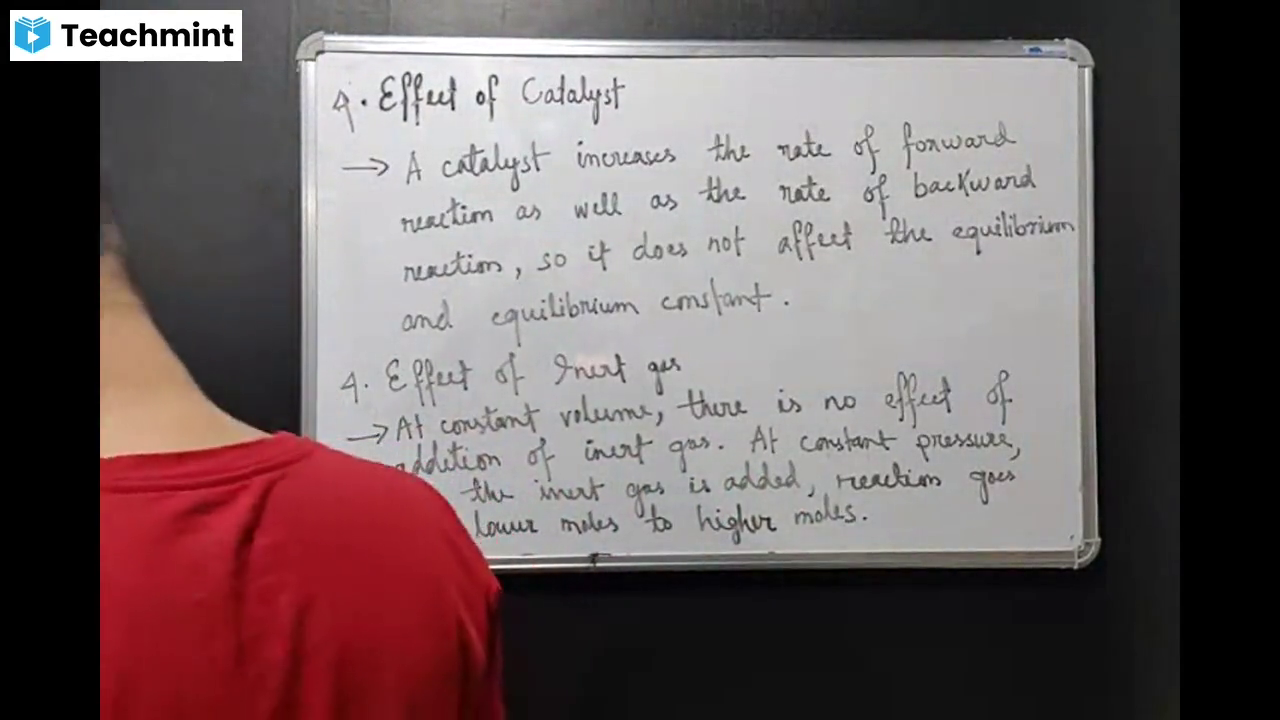 Teachmint
4. Effect of Catalyst
→ A catalyst increases the rate of forward
reaction as well as the rate of backward
reaction, so it does not affect the equilibrium
and equilibrium constant.
4. Effect of Inert gas
→ At constant volume, there is no effect of
addition of inert gas. At constant pressure,
the inert gas is added, reaction goes
lower moles to higher moles.